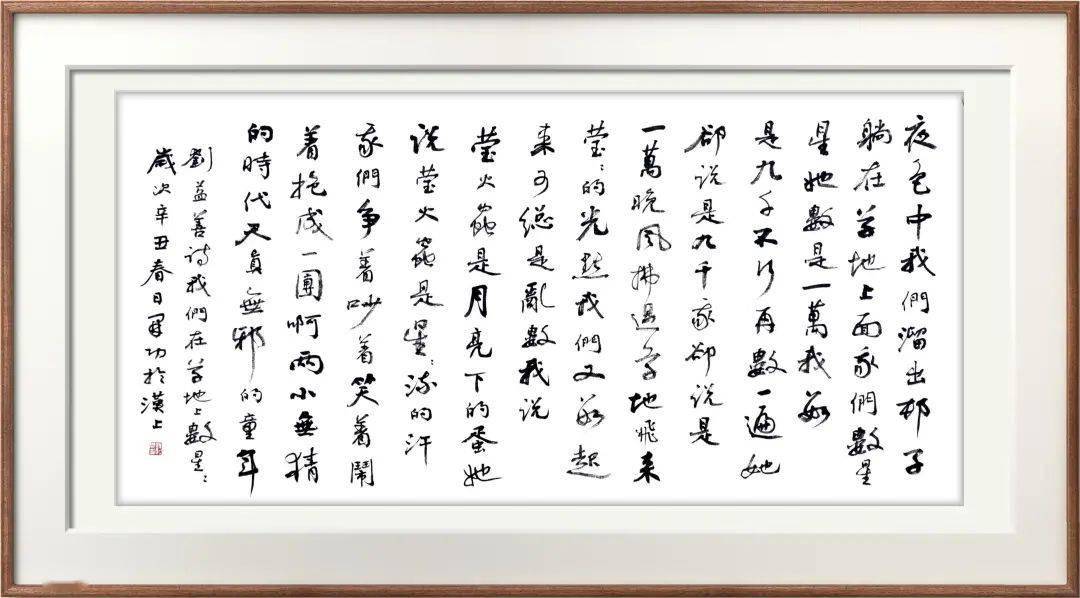 夜色中我們溜出村子
躺在草地上面我們數星
星她數是一萬我數
是九千不行再數一遍她
卻說是九千我卻說是
一萬晚風拂過草地飛來
瑩:的光點我們又數起
来可總是亂數我説
螢火蟲是月亮下的蛋她
説螢火蟲是星:流的汗
我們爭着吵着笑着鬧
着抱成一團啊兩小無猜
的時代天真無邪的童年
劉益善詩我們在草地上數星:
歲次辛丑春日軍功於漢上